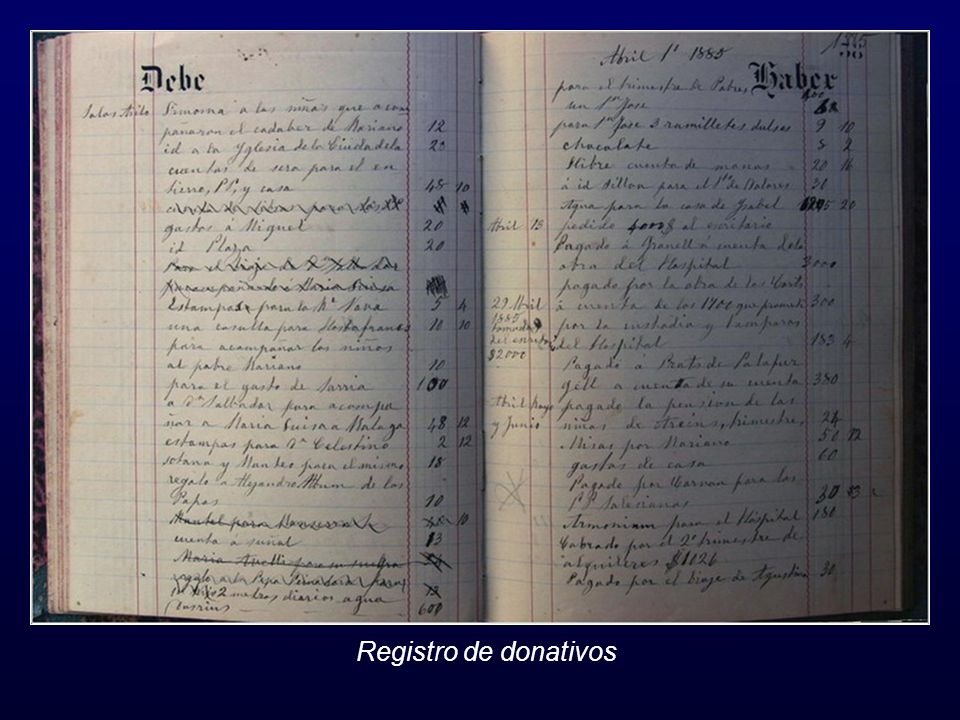 Debe
Limosna a las niñas que acom
pañaron el cadaber de Mariano 12
id a la Yglesia de la Ciudadela 20
cuentas de sera para el en
tierro, PP, y casa 48 10
gastos á Miguel 20
id Plaza 20
Estampas para la Nava 5 4
una casulla para Hostafranes 10 10
para acompañar los niños
al pobre Mariano 10
para el gasto de Sarria 100
a Dª Salbador para acompa
ñar a Maria Luisa a Malaga 48 12
estampas para Dª Celestino 2 12
sotana y Manteo para el mismo 18
regalo a Alejandro Album de los
Papas 10
10
cuenta a suñal 13
2 metros diarios agua
600
1885
Abril 1º 1885
Haber
para el trimestre de Pobres
un Sn Jose
para Sn Jose 3 ramilletes dulses 9 10
chocolate 8 2
Llibre cuenta de manas 20 16
á id sillon para el de Dolores 30
Agua para la casa de Ysabel 20
Abril 13 pedido 4000 $ al escritorio
Pagado á Granell á cuenta de la
obra del Hospital 3000
pagado por la obra de las Corts
29 Abril á cuenta de los 1700 que prometi 300
1885 por la custodia y lamparas
del Hospital 183 4
$2000
Pagado a Prats de Palapur
gell a cuenta de su cuenta 380
Abril Mayo pagado la pension de las
y Junio niñas de trimestre, 24
Misas por Mariano 50 12
gastos de casa 60
Pagado por Carvan para los
PP Salesianos 30 83
Armonium para el Hospital 180
Cobrado por el 2º trimestre de
alquileres $1026
Pagado por el viaje de Agustina 30
Registro de donativos